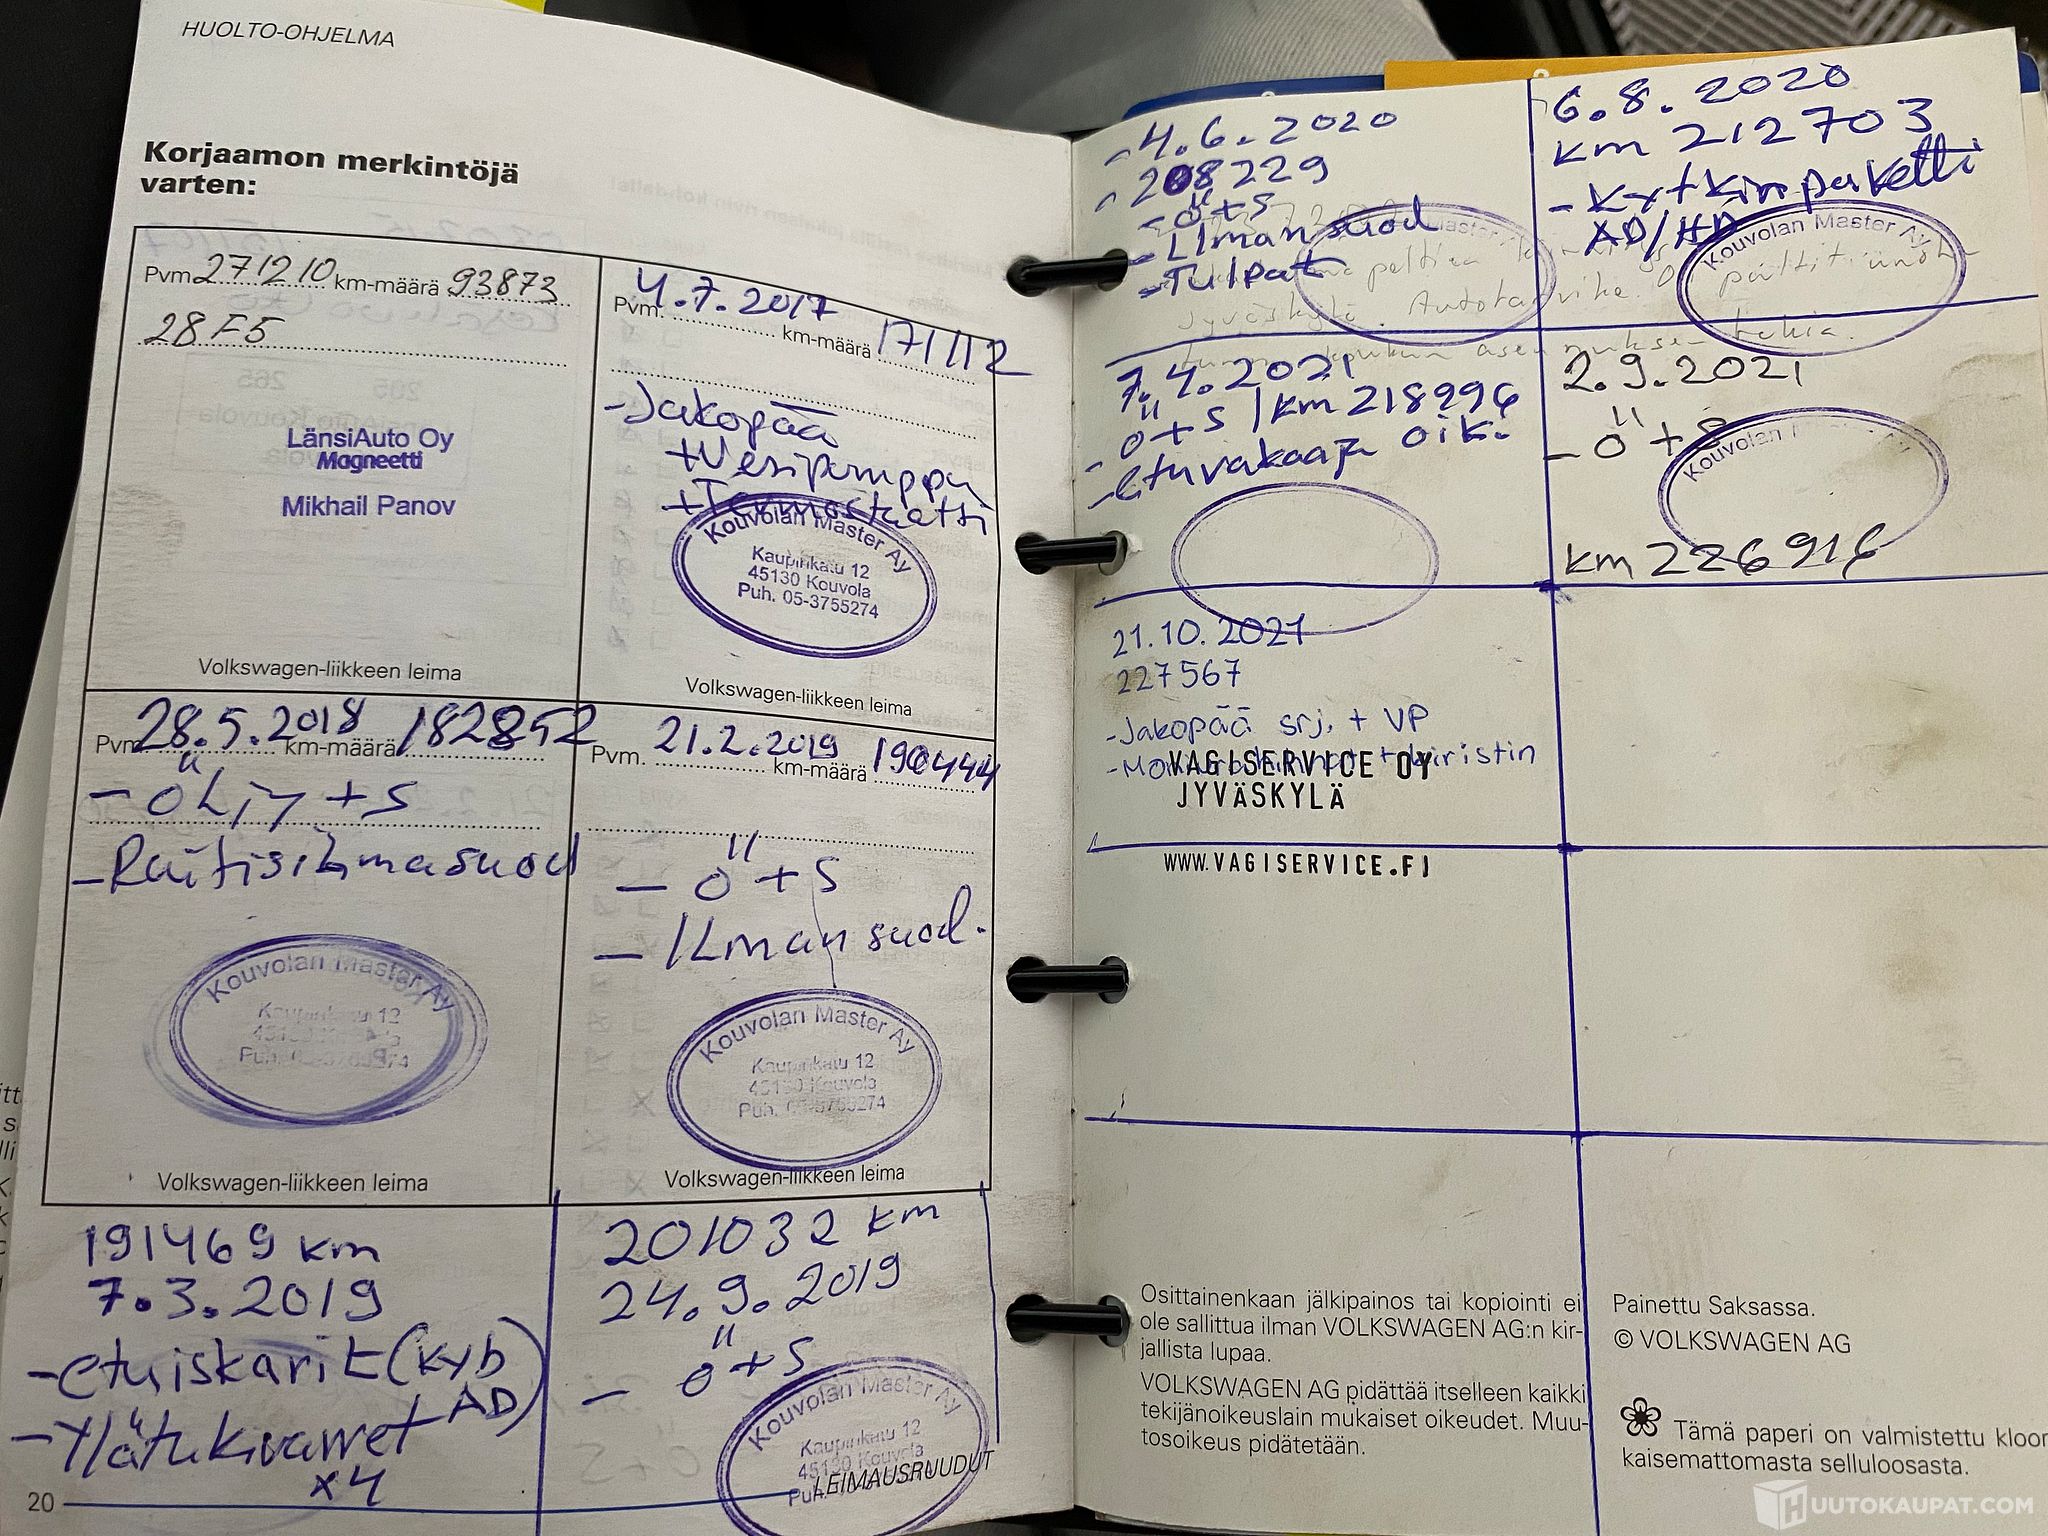 HUOLTO-OHJELMA
Korjaamon merkintöjä
varten:
Pvm. 271210 km-määrä 93873
28F5
LänsiAuto Oy
Magneetti
Mikhail Panov
Volkswagen-liikkeen leima
Pvm. 4.7.2017 km-määrä 171112
-Jakopää
+Vesipumppu
+Termostaatti
Kouvolan Master Ay
Kaupinkatu 12
45130 Kouvola
Puh. 05-3755274
Volkswagen-liikkeen leima
Pvm. 28.5.2018 km-määrä 182852
- öljy + S
-Raitisilmasuod
Kouvolan Master Ay
Kaupinkatu 12
45130 Kouvola
Puh. 05-3755274
Volkswagen-liikkeen leima
Pvm. 21.2.2019 km-määrä 190444
- ö+S
- Ilman suod.
Kouvolan Master Ay
Kaupinkatu 12
45130 Kouvola
Puh. 05-3755274
Volkswagen-liikkeen leima
191469 km
7.3.2019
-etuiskarit (Kyb
AD)
-Ylätukivarret
x4
201032 km
24.9.2019
- ö+S
Kouvolan Master Ay
Kaupinkatu 12
45130 Kouvola
Puh.
LEIMAUSRUUDUT
20
-4.6.2020
-208229
-ö+S
-Ilman suod
-Tulpat
6.8.2020
km 212703
-Kytkinpaketti
AD/HD
Kouvolan Master Ay
Jyväskylä. Autotarvike.
7.4.2021
- ö+S / km 218996
-etuvakaaja oik.
2.9.2021
- ö+S
Kouvolan
km 226916
21.10.2021
227567
-Jakopää srj. + VP
+ kiristin
VAGISERVICE OY
JYVÄSKYLÄ
WWW.VAGISERVICE.FI
Osittainenkaan jälkipainos tai kopiointi ei
ole sallittua ilman VOLKSWAGEN AG:n kir-
jallista lupaa.
VOLKSWAGEN AG pidättää itselleen kaikki
tekijänoikeuslain mukaiset oikeudet. Muu-
tosoikeus pidätetään.
Painettu Saksassa.
© VOLKSWAGEN AG
Tämä paperi on valmistettu kloor
kaisemattomasta selluloosasta.
HUUTOKAUPAT.COM